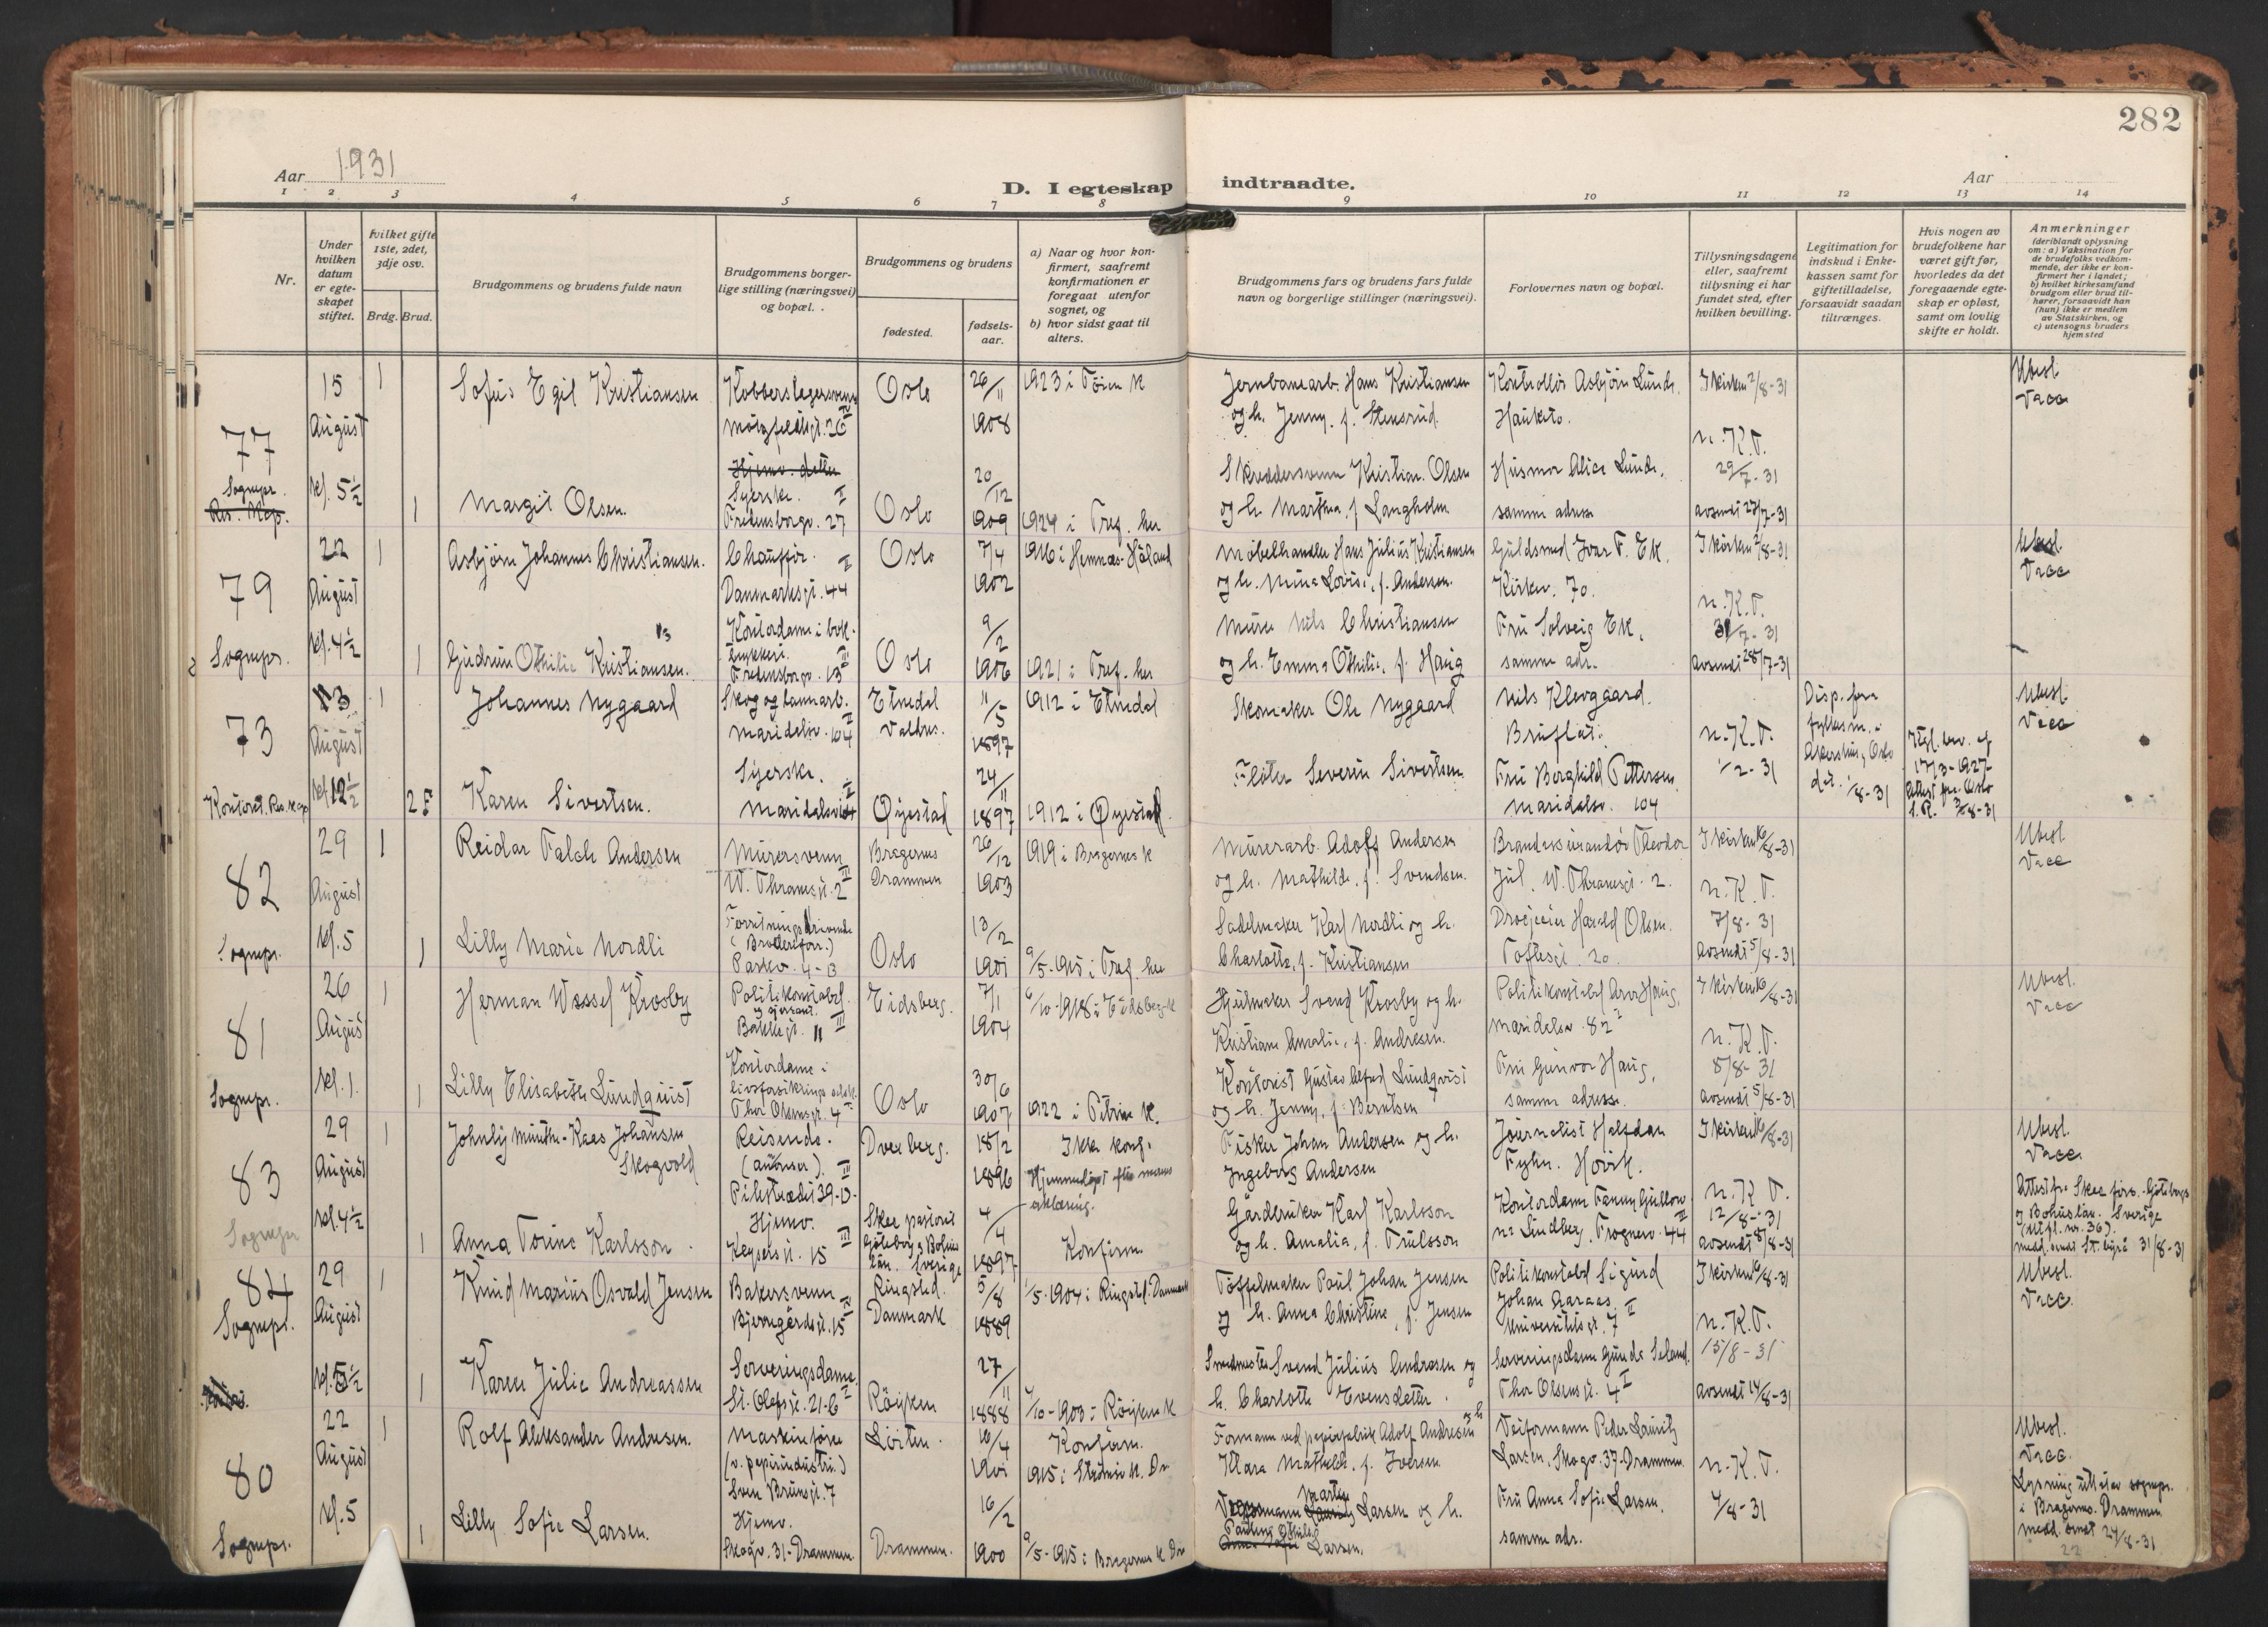 282
Aar 1931
D. I egteskap indtraadte.
Aar
1 2 3 4 5 6 7 8 9 10 11 12 13 14
Nr.
Under hvilken datum er egteskapet stiftet.
hvilket gifte 1ste, 2det, 3dje osv.
Brdg. Brud.
Brudgommens og brudens fulde navn
Brudgommens borgerlige stilling (næringsvei) og bopæl.
Brudgommens og brudens
fødested.
fødselsaar.
a) Naar og hvor konfirmert, saafremt konfirmationen er foregaat utenfor sognet, og
b) hvor sidst gaat til alters.
Brudgommens fars og brudens fars fulde navn og borgerlige stillinger (næringsvei).
Forlovernes navn og bopæl.
Tillysningsdagene eller, saafremt tillysning ei har fundet sted, efter hvilken bevilling.
Legitimation for indskud i Enkekassen samt for giftetilladelse, forsaavidt saadan tiltrænges.
Hvis nogen av brudefolkene har været gift før, hvorledes da det foregaaende egteskap er opløst, samt om lovlig skifte er holdt.
Anmerkninger
(deriblandt oplysning om: a) Vaksination for de brudefolks vedkommende, der ikke er konfirmert her i landet; b) hvilket kirkesamfund brudgom eller brud tilhører, forsaavidt han (hun) ikke er medlem av Statskirken, og c) utensogns bruders hjemsted
77 15 August kl. 5½ Sognepr. Res. Kap.
1 Sofus Egil Kristiansen Kobberslagersvenn Oslo 26/11 1908 1923 i Tøien K
Jernbanearb. Hans Kristiansen og h. Jenny, f. Stensrud. Kontrollør Asbjørn Lund, Hauketo. I kirken 2/8-31 n. K. T. Ubesl. Vacc
1 Margit Olsen. Syerske. Fredensborgv. 27 Oslo 20/12 1909 1924 i Tref. her
Skreddersvenn Kristian Olsen og h. Marthea, f. Langholm Husmor Alice Lund, samme adresse 29/7-31 avsendt 27/7-31
79 22 August kl. 4½ Sognepr.
1 Asbjørn Johannes Christiansen. Chauffør. Danmarksgt. 44 Oslo 7/4 1902 1916 i Hemnæs-Høland
Møbelhandler Hans Julius Kristiansen og h. Mina Lovise, f. Andersen. Guldsmed Ivar F. Ek. Kirkev. 70. I kirken 2/8-31 n. K. T. Ubesl. Vacc
1 Gudrun Othilie Kristiansen. Kontordame i boktrykkeri. Fredensborgv. 13 Oslo 9/2 1906 1921 i Tref. her
Murer Nils Christiansen og h. Emma Othilie, f. Haug Fru Solveig Ek, samme adr. 31/7-31 avsendt 28/7-31
73 13 August kl. 12½ Kontoret. Res. kap
1 Johannes Nygaard Skog og tømmarb. Maridalsv. 104 Etnedal Valdres. 11/5 1897 1912 i Etnedal
Skomaker Ole Nygaard Nils Klevgaard. Bruflat. n. K. T. 1/2-31 Disp. fra fylkesm. i Akershus, Oslo dat. 1/8-31 Ubesl. Vacc
2 F Karen Sivertsen. Syerske. Maridalsv. 104 Øyestad 24/11 1897 1912 i Øyestad.
Fløter Severin Sivertsen Fru Borghild Pettersen Maridalsv. 104 17/3-1927 Attest fra Oslo S. R. 3/8-31
82 29 August kl. 5 Sognepr.
1 Reidar Falch Andersen Murersvenn W. Thranesgt. 2 Bragernes Drammen 26/12 1903 1919 i Bragernes K
Murerarb. Adolf Andersen og h. Mathilde, f. Svendsen. Theodor Jul, W. Thranesgt. 2. I kirken 16/8-31 n. K. T. Ubesl. Vacc
1 Lilly Marie Nordli Forretningsdrivende Parkv. 4-B Oslo 13/2 1901 9/5-1915 i Tref. her
Sadelmaker Karl Nordli og h. Charlotte, f. Kristiansen Droejeier Harald Olsen. Toftesgt. 20. 7/8-31 avsendt 5/8-31
81 26 August kl. 1. Sognepr.
1 Herman Wessel Krosby Politikonstabel Bakkegt. 11 Eidsberg. 7/1 1904 6/10-1918 i Eidsberg K
Hjulmaker Svend Krosby og h. Kristiane Amalie, f. Andresen. Politikonstabel Arne Haug, Maridalsv. 82 I kirken 16/8-31 n. K. T. Ubesl. Vacc
1 Lilly Elisabeth Lundquist Kontordame i livsforsikringsselsk. Thor Olsensgt. 4 Oslo 30/6 1907 1922 i Petrus K.
Kontorist Gustav Alfred Lundqvist og h. Jenny, f. Berntsen Fru Gunvor Haug, samme adresse. 8/8-31 avsendt 5/8-31
83 29 August kl. 4½ Sognepr
1 Johnly Munthe-Kaas Johansen Skogvold Reisende. Pilestrædet 39-B Dverberg. 18/2 1896 Ikke konf. Hjemmedøpt efter mors erklæring.
Fisker Johan Andersen og h. Ingeborg Andersen Journalist Halfdan Fyhn. Høvik. I kirken 16/8-31 n. K. T. Ubesl. Vacc.
1 Anna Torine Karlsson. Hjemv. Keysersgt. 15 Skee pastorat Göteborg & Bohus län. Sverige 4/4 1897 Konfirm.
Gårdbruker Karl Karlsson og h. Amalia, f. Trulsson Kontordame Fanny Lindberg. Frognerv. 44 12/8-31 avsendt 8/8-31 Attest fra Skee førs. Göteborgs & Bohuslän. Sverige 31/8-31
84 29 August kl. 5½ Sognepr.
1 Knud Marius Osvald Jensen Bakersvenn Bjerregårdsgt. 15 Ringsted. Danmark 5/8 1889 1/5-1904 i Ringsted. Danmark
Tøffelmaker Poul Johan Jensen og h. Anna Christine, f. Jensen Politikonstabel Sigurd Johan Aaraas Universitetsgt. 7 I kirken 16/8-31 n. K. T. Ubesl. Vacc.
1 Karen Julie Andreassen Serveringsdame. St. Olafsgt. 21-C Røyken 27/11 1888 4/10-1903 i Røyken K
Smedmester Svend Julius Andreassen og h. Charlotte Evensdatter. Serveringsdame Gunda Seland. Thor Olsensgt. 4 15/8-31 avsendt 14/8-31
80 22 August kl. 5 Sognepr.
1 Rolf Aleksander Andresen. Maskinfører (v. papirindustri.) Sven Brunsgt. 7 Løiten. 16/4 1901 Konfirm. 1915 i Strømsø K. Dr
Formann ved papirfabrik Adolf Andresen og h Klara Mathilde, f. Iversen Veiformann Peder Lauritz Larsen, Skogv. 37-Drammen. n. K. T. Ubesl. Vacc.
1 Lilly Sofie Larsen. Hjemv. Skogv. 31-Drammen. Drammen. 16/2 1900 9/5-1915 i Bragernes K Dr
Martin Larsen og h. Larsen. Fru Anna Sofie Larsen. samme adr. 4/8-31 Lysning utført av sognepr. i Bragernes. Drammen medd. sendt 24/8-31
22